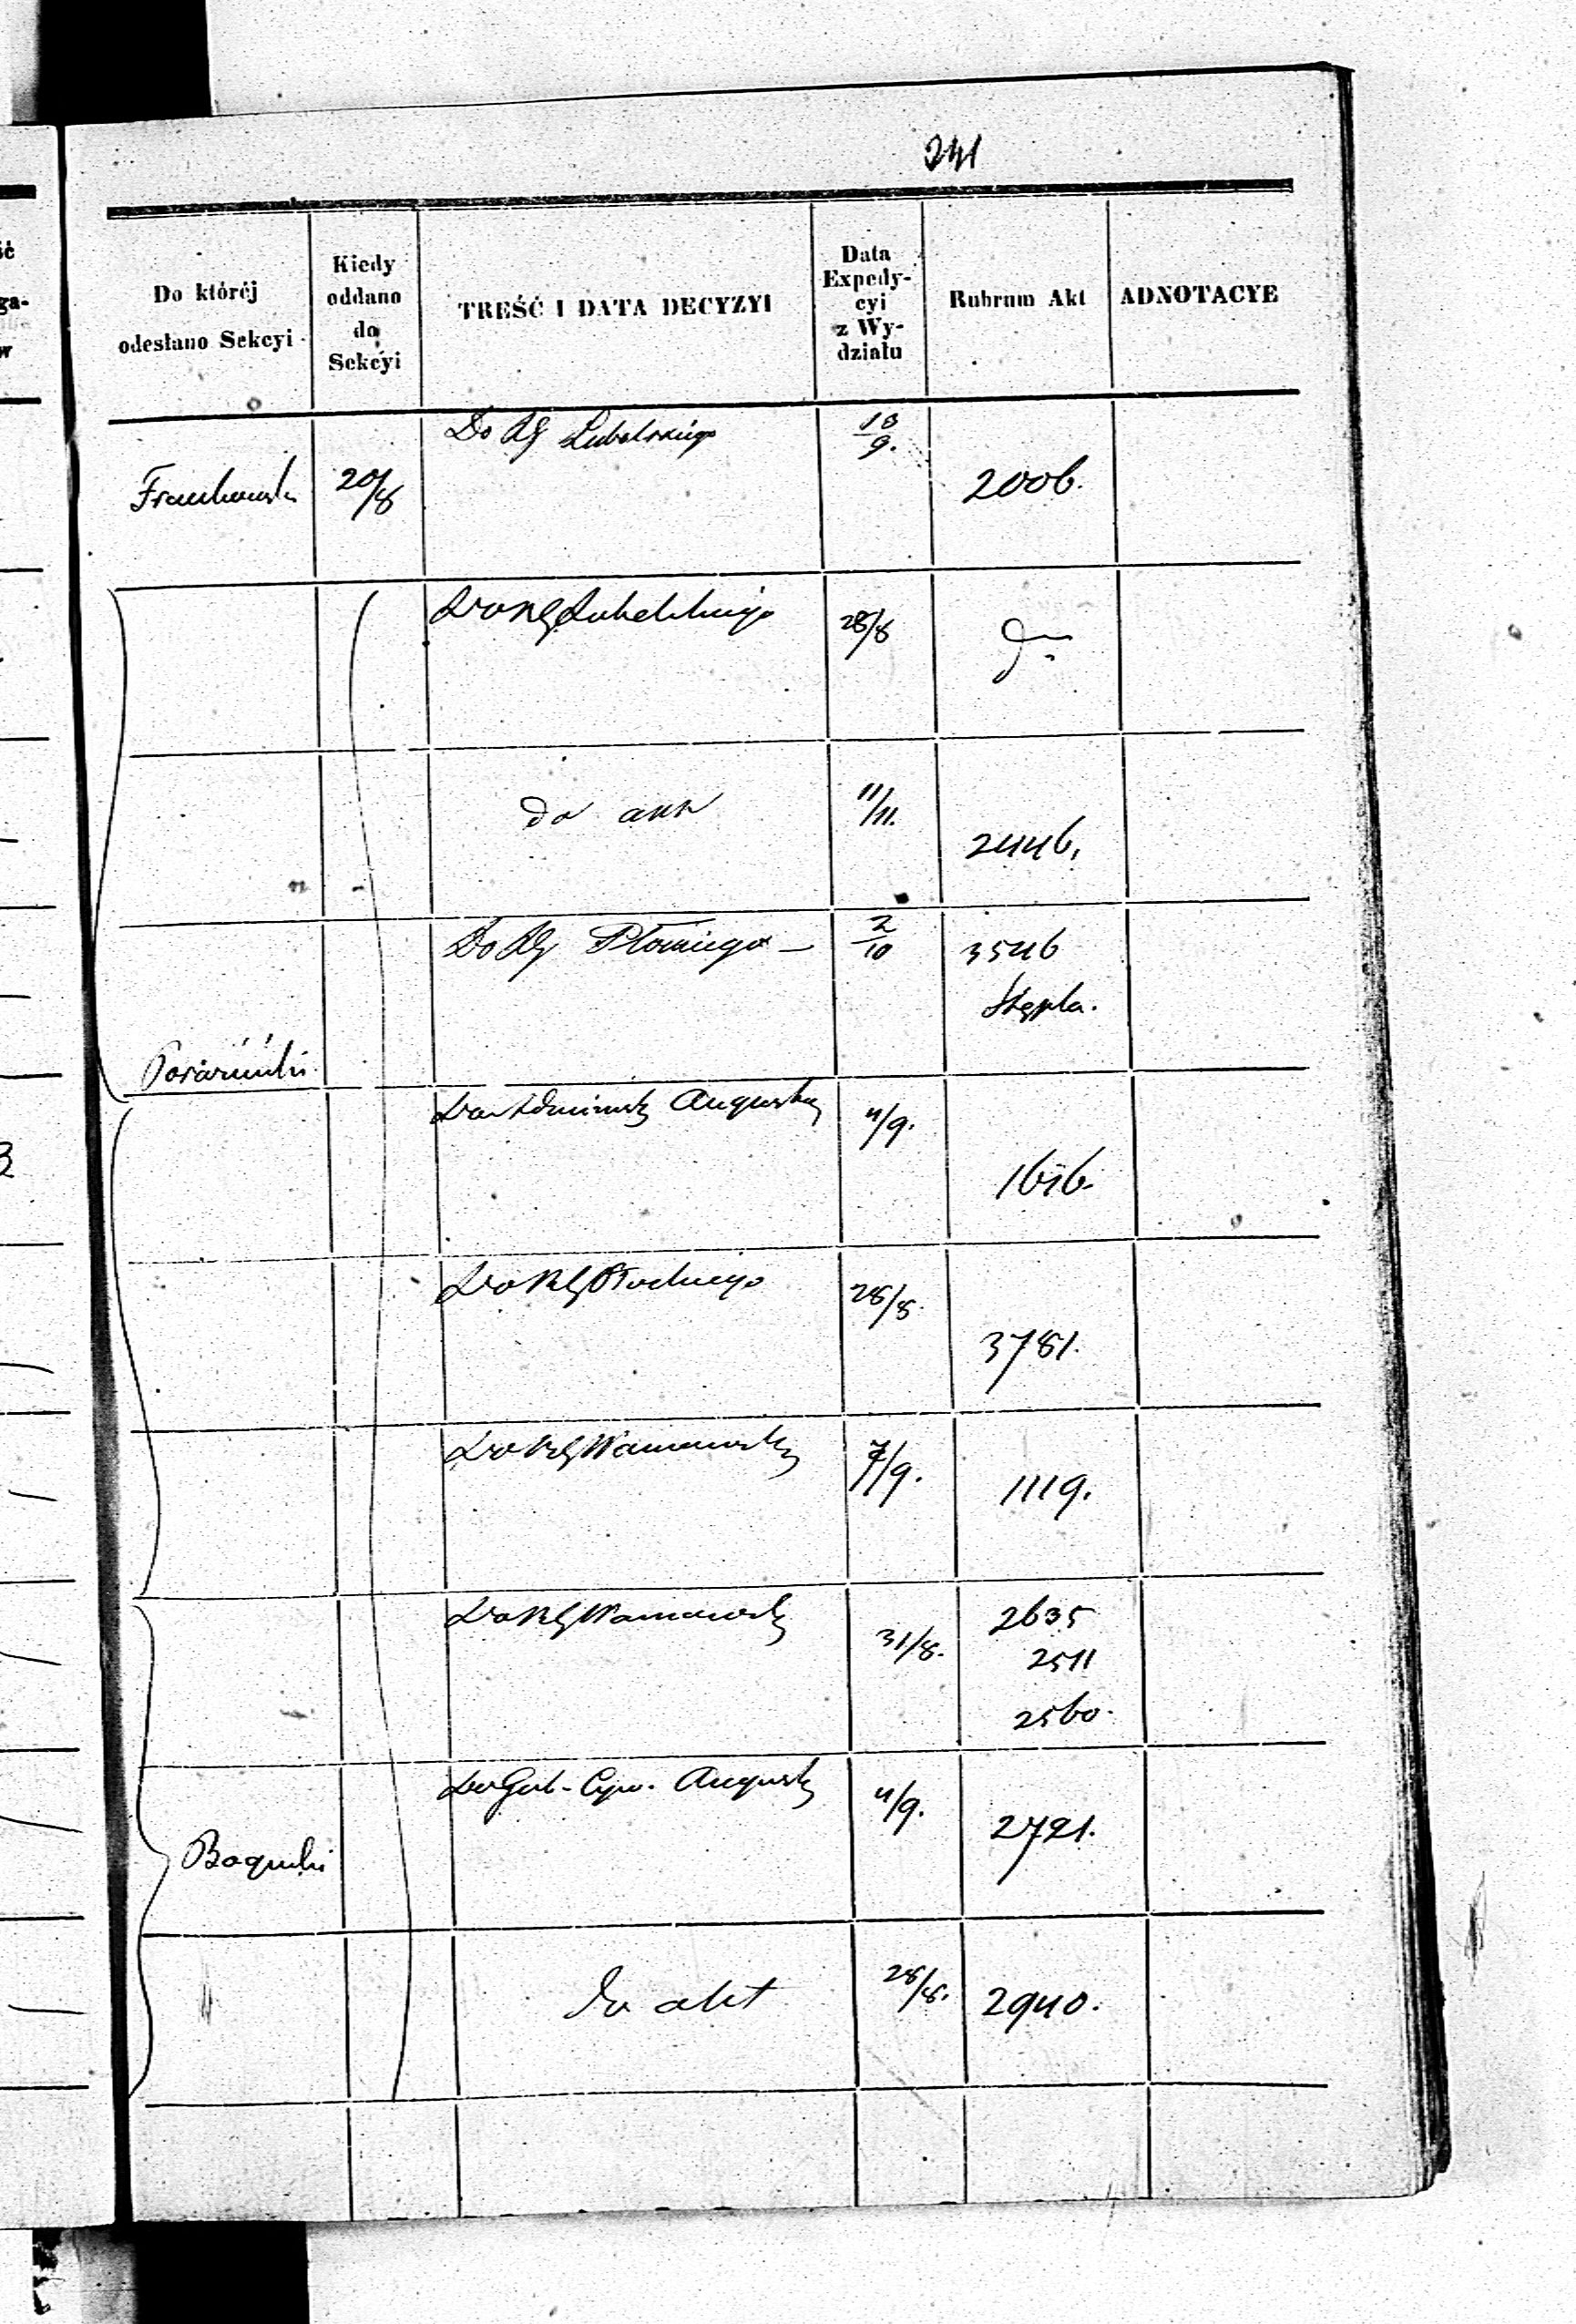 241
Do któréj
odesłano Sekcyi
Kiedy
oddano
do
Sekcyi
TREŚĆ I DATA DECYZYI
Data
Expedy-
cyi
z Wy-
działu
Rubrum Akt
ADNOTACYE
20/8
Do RG Lubelskiego
18/9.
2006.
Do RG Lubelskiego
28/8
do akt
11/11.
2446.
Do RG
2/10
3546
Stępla.
Do Augustow
4/9.
1616.
Do RG Płockiego
28/8.
3781.
Do RG Warszawsk
7/9.
1119.
Do RG Warszawsk
31/8.
2635
2511
2560.
Do Gub. Cyw. Augustow
4/9.
2721.
Do akt
28/8.
2940.